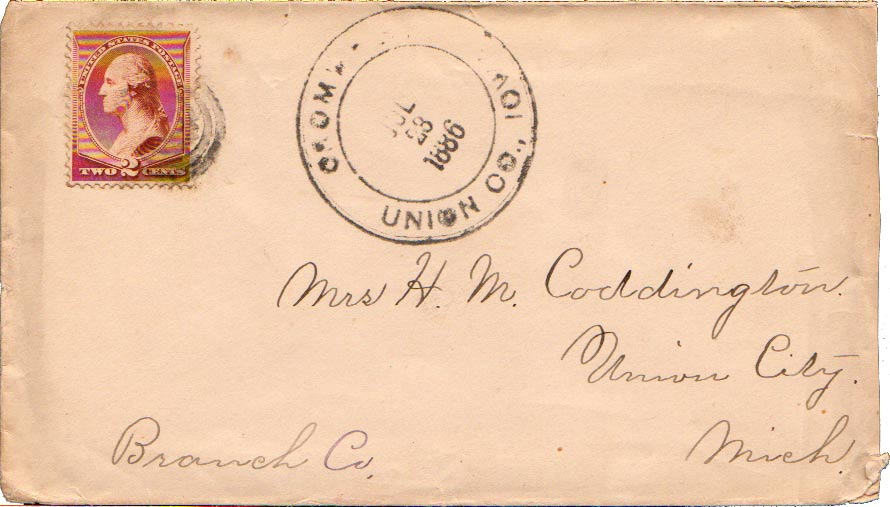 UNITED STATES POSTAGE
TWO 2 CENTS
UNION CO., IOW
JUL
23
1886
Mrs H. M. Coddington.
Union City.
Branch Co.
Mich.